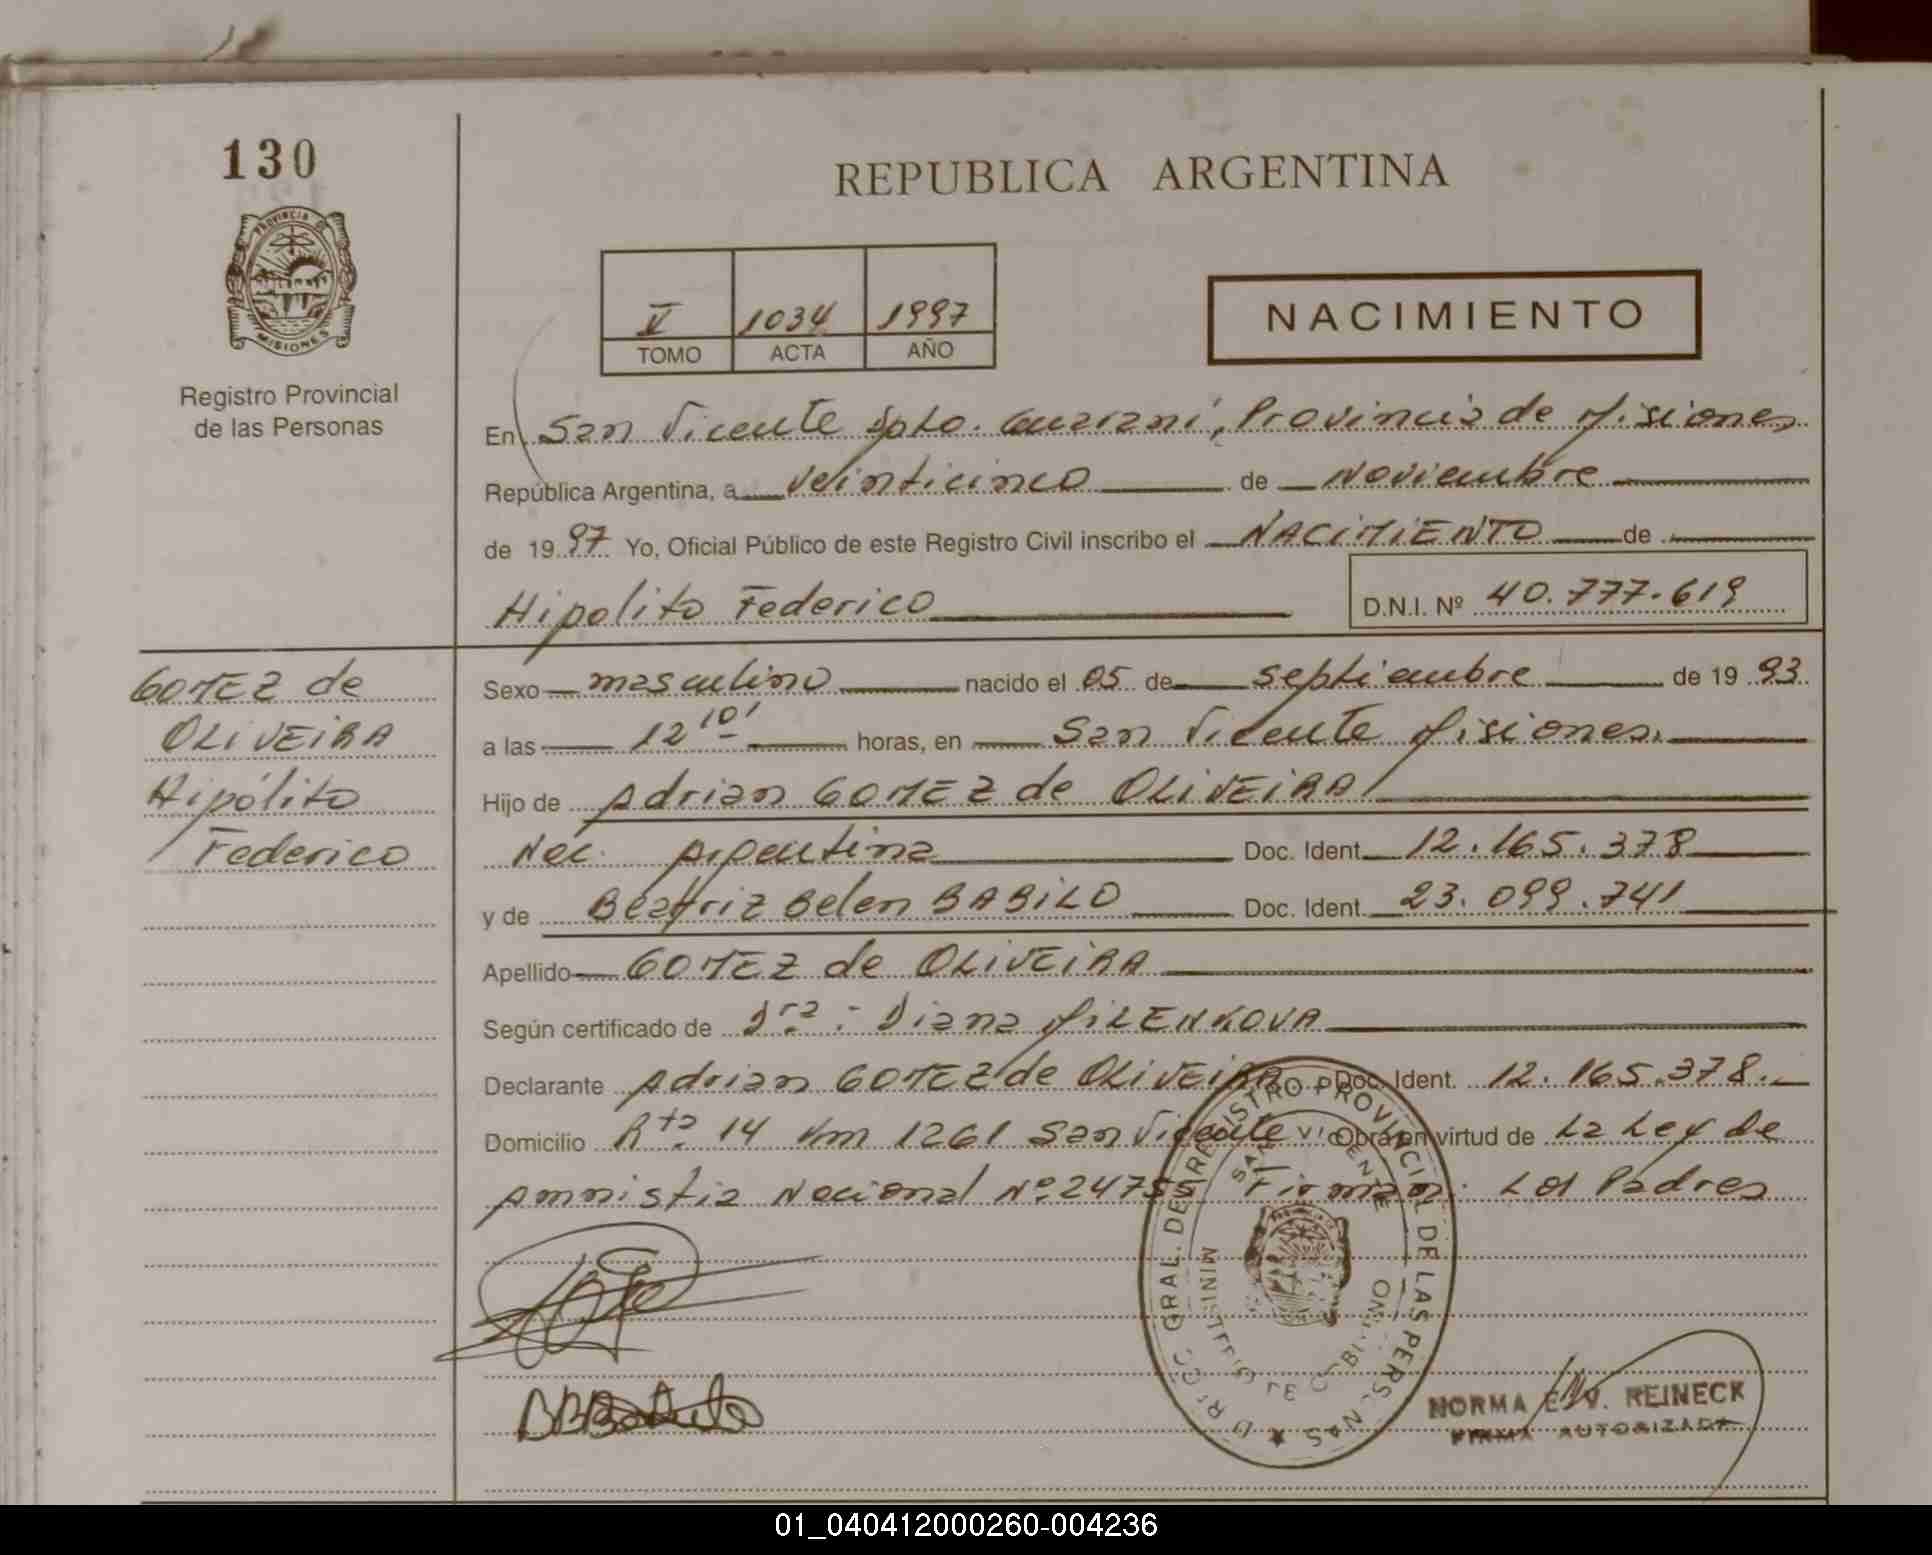 130
PROVINCIA DE
MISIONES
Registro Provincial
de las Personas
REPUBLICA ARGENTINA
V 1034 1997
TOMO ACTA AÑO
NACIMIENTO
En San Vicente Dpto. Guaraní, Provincia de Misiones
República Argentina, a veinticinco de Noviembre
de 1997 Yo, Oficial Público de este Registro Civil inscribo el NACIMIENTO de
Hipolito Federico D.N.I. Nº 40.777.619
GOMEZ de
OLIVEIRA
Hipólito
Federico
Sexo masculino nacido el 05 de septiembre de 1993
a las 12 10' horas, en San Vicente Misiones.
Hijo de Adrian GOMEZ de OLIVEIRA
Nac. Argentina Doc. Ident. 12.165.378
y de Beatriz Belen BABILO Doc. Ident. 23.099.741
Apellido GOMEZ de OLIVEIRA
Según certificado de Dra. Diana MILENKOVA
Declarante Adrian GOMEZ de OLIVEIRA Doc. Ident. 12.165.378.
Domicilio Rta. 14 Km 1261 San Vicente Obra en virtud de La Ley de
Amnistia Nacional Nº 24755 Firman: Los Padres
DIRECC. GRAL. DE REGISTRO PROVINCIAL DE LAS PERSONAS
SAN VICENTE
MINISTERIO DE GOBIERNO
NORMA E. V. REINECK
FIRMA AUTORIZADA
01_040412000260-004236